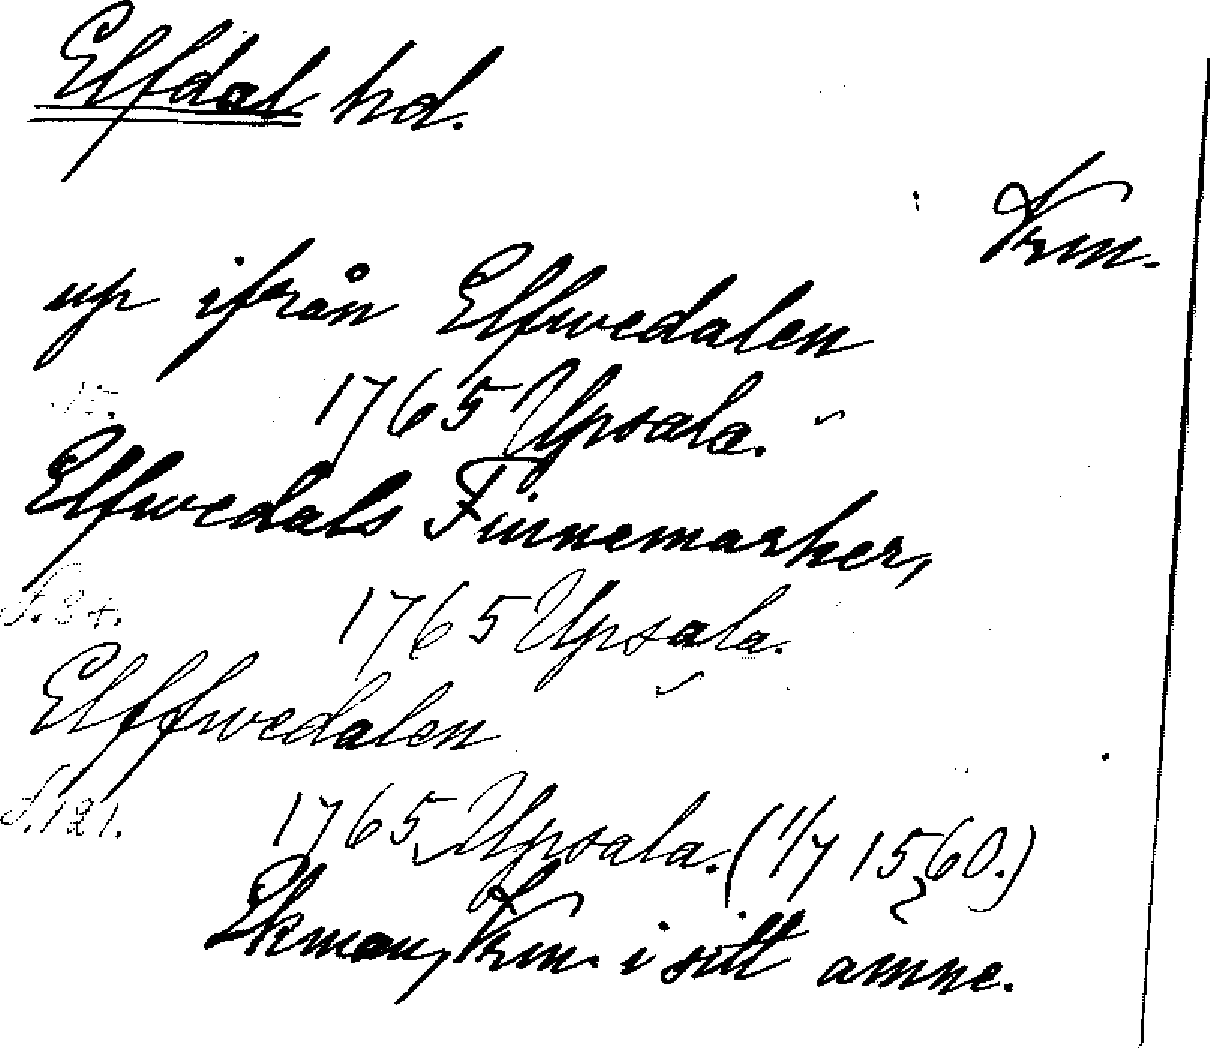 Elfdal hd.
Vrm.
up ifrån Elfwedalen
1765 Upsala.
Elfwedals Finnemarker,
S. 34. 1765 Upsala.
Elffwedalen
S. 121. 1765 Upsala. (1/7 1560.)
Ekman, Vrm. i sitt ämne.